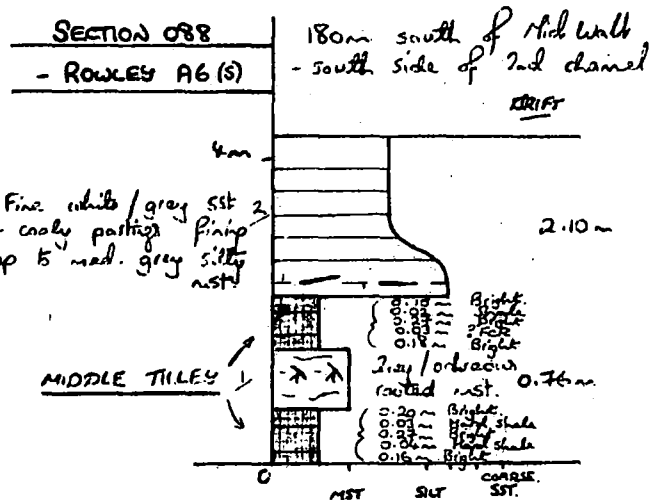 SECTION 088
- ROWLEY A6 (S)
180m south of
- South side of 2nd channel
DRIFT
4m
Fine white / grey sst 2
coaly partings fining
up to med. grey silty
mst
2.10 m
0.10 m Bright.
Bright
0.18 m Bright
MIDDLE TILLEY 1
Grey /
rooted mst.
0.76 m
0.20 m Bright
0.03 m Hard shale
0.27 m Bright
0.04 m Hard shale
0.16 m Bright
0
MST SILT COARSE
SST.